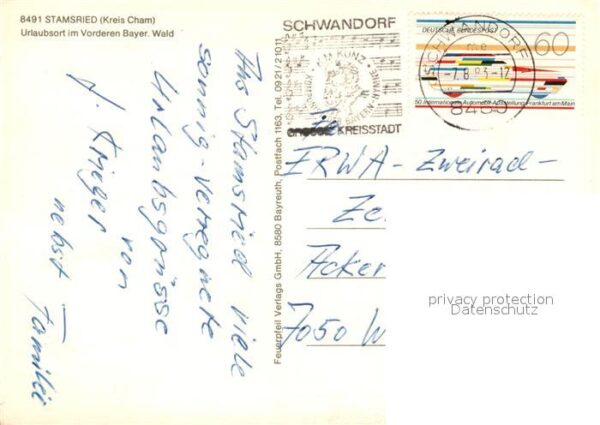 8491 STAMSRIED (Kreis Cham)
Urlaubsort im Vorderen Bayer. Wald
Aus Stamsried viele
sonnig-verregnete
Urlaubsgrüsse
von
J. Krieger
nebst Familie
Feuerpfeil Verlags GmbH, 8580 Bayreuth, Postfach 1163, Tel. 0921/21011
SCHWANDORF
KONRAD MAX KUNZ
KREISSTADT
SCHWANDORF
-7.8.83-12
8460
DEUTSCHE BUNDESPOST
60
50 Internationale Automobil-Ausstellung Frankfurt am Main
Fa
ERWA-Zweirad-
Ze
Acker
7050 W
privacy protection
Datenschutz